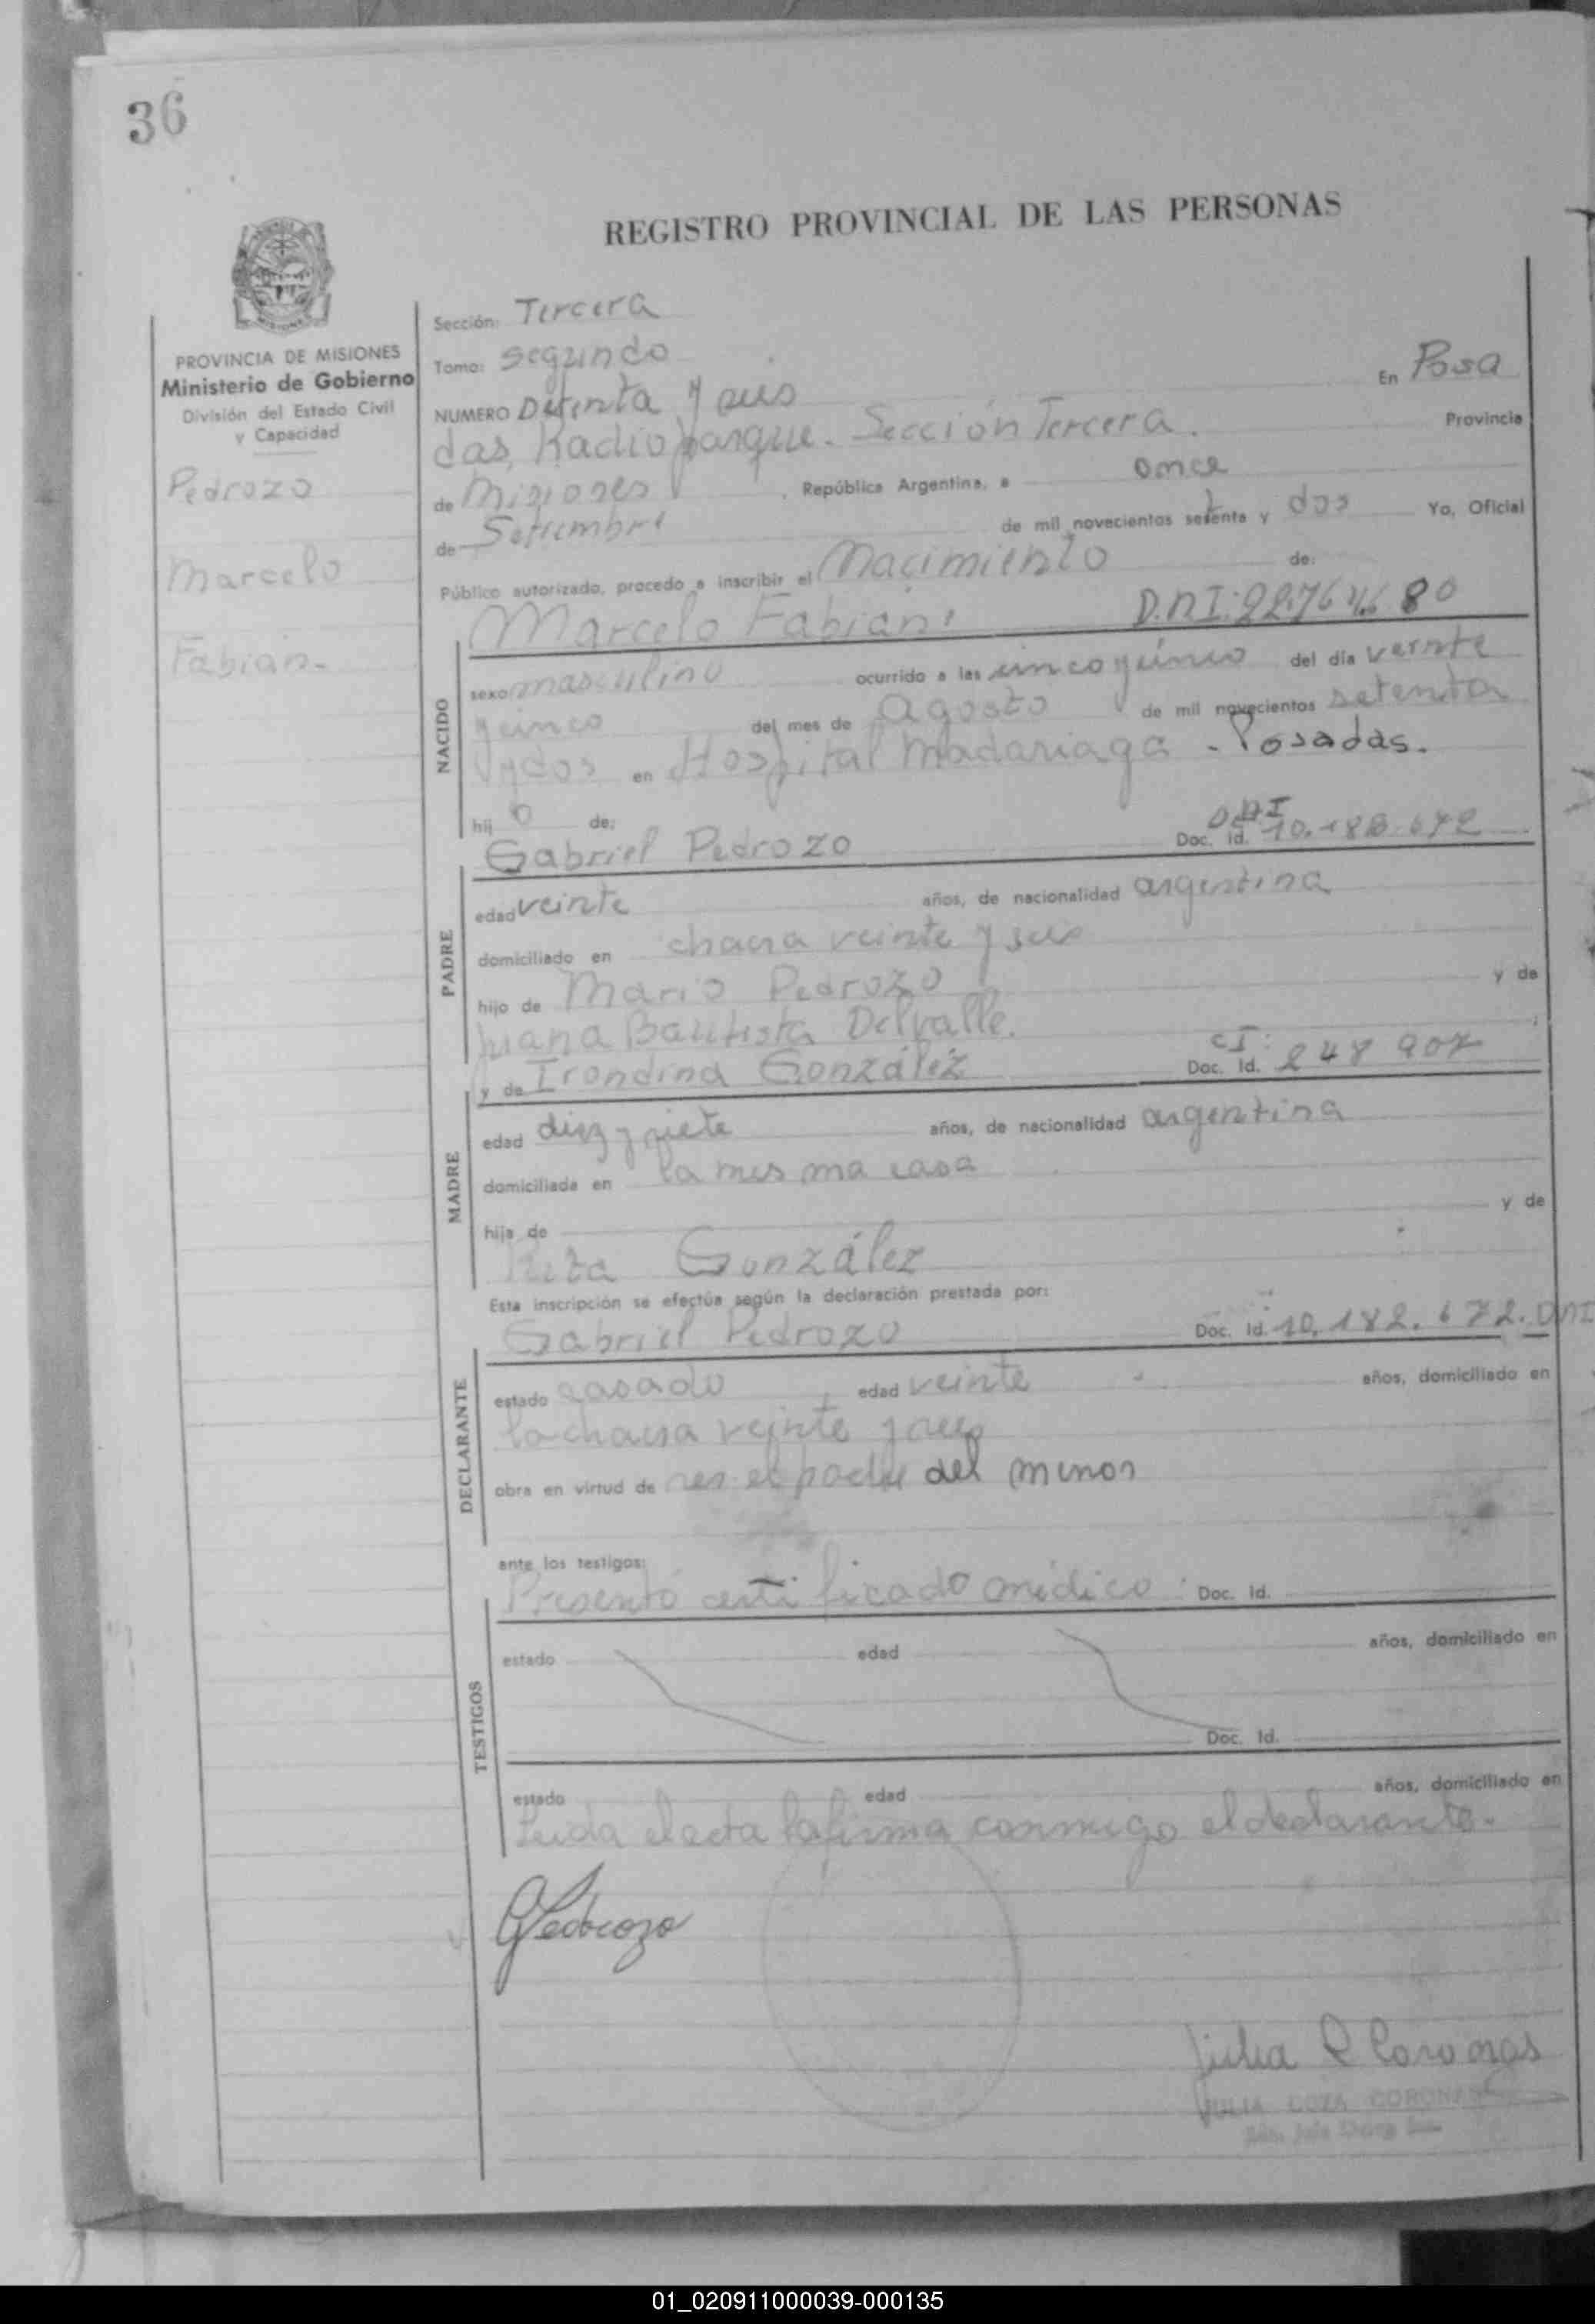 36
REGISTRO PROVINCIAL DE LAS PERSONAS
PROVINCIA DE MISIONES
Ministerio de Gobierno
División del Estado Civil
y Capacidad
Pedrozo
Marcelo
Fabian.-
Sección: Tercera
Tomo: segundo
NUMERO y seis En Posa
das, Radio parque. Sección Tercera. Provincia
de Misiones, República Argentina, a once
de Setiembre de mil novecientos setenta y dos Yo, Oficial
Público autorizado, procedo a inscribir el Nacimiento de:
Marcelo Fabián. D.N.I:
NACIDO
sexo masculino ocurrido a las cinco y cinco del día veinte
y cinco del mes de Agosto de mil novecientos setenta
y dos en Hospital Madariaga - Posadas.
hij o de:
Gabriel Pedrozo Doc. Id.
PADRE
edad veinte años, de nacionalidad argentina
domiciliado en chacra veinte y seis
hijo de Mario Pedrozo y de
Juana Bautista Delvalle. ;
y de Irondina González CI: Doc. Id. 248 907
MADRE
edad diez y siete años, de nacionalidad argentina
domiciliada en la mis ma casa
hija de y de
Rita González
Esta inscripción se efectúa según la declaración prestada por:
Gabriel Pedrozo Doc. Id. 10.182.672. DNI
DECLARANTE
estado casado, edad veinte años, domiciliado en
la chacra veinte y seis
obra en virtud de ser el padre del menor
ante los testigos:
Presentó certificado médico. Doc. Id.
TESTIGOS
estado edad años, domiciliado en
Doc. Id.
estado edad años, domiciliado en
Leida el acta la firma conmigo el declarante.-
GPedrozo
Julia R Coronas
JULIA CORONAS
01_020911000039-000135